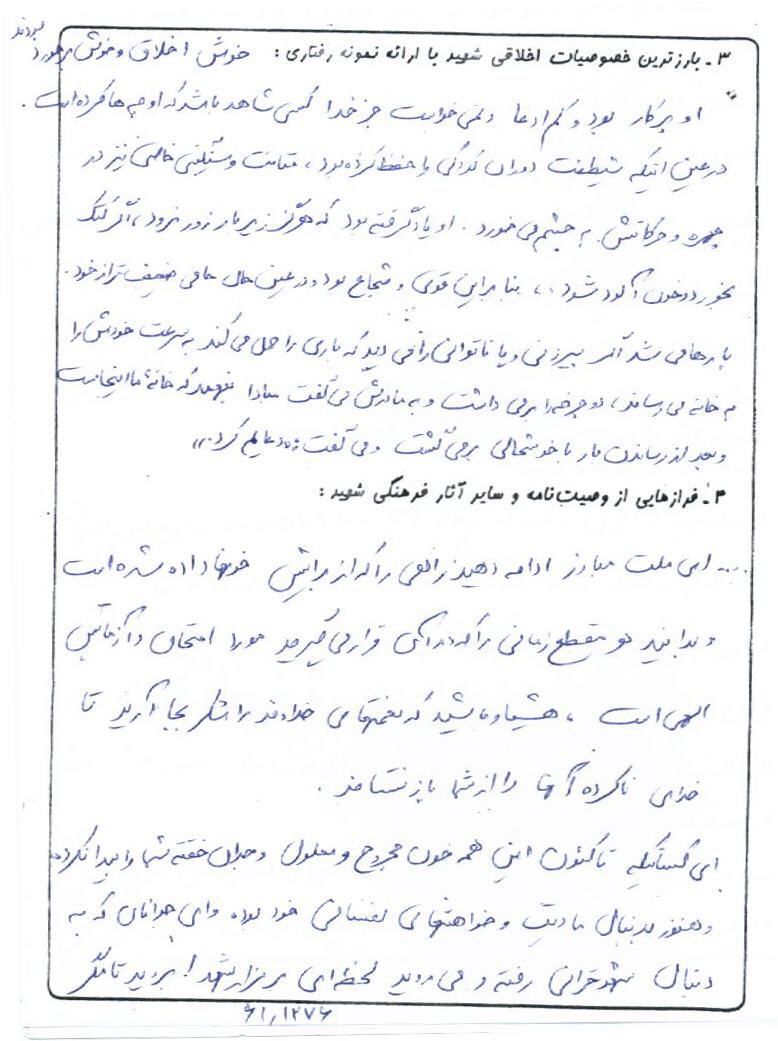 ۳ ـ بارزترین خصوصیات اخلاقی شهید با ارائه نمونه رفتاری : خوش اخلاق و خوش برخورد بودند
او پرکار بود و کم ادعا و نمی خواست جز خدا کسی شاهد باشد که او چه ها کرده است .
در عین اینکه شیطنت دوران کودکی را حفظ کرده بود ، متانت و سنگینی خاصی نیز در
چهره و حرکاتش به چشم می خورد . او یاد گرفته بود که هرگز زیر بار زور نرود ، اگر کتک
بخورد و خون آلود شود ،، بنابراین قوی و شجاع بود و در عین حال حامی ضعیف تر از خود .
بارها می شد اگر پیرزنی و یا ناتوانی را می دید که باری را حمل می کند به سرعت خودش را
به خانه می رساند ، دوچرخه را برمی داشت و به مادرش می گفت مبادا بفهمد که خانهٔ ما اینجاست
و بعد از رساندن بار با خوشحالی برمی گشت و می گفت دعایم کرد ،،
۴ ـ فرازهایی از وصیت‌نامه و سایر آثار فرهنگی شهید :
... ای ملت مبارز ادامه دهید راهی را که از برایش خونها داده شده است
و بدانید هر مقطع زمانی را که در آن قرار می گیرید مورد امتحان و آزمایش
الهی است ، هشیار باشید که نعمتهای خداوند را شکر بجا آرید تا
خدای ناکرده آنها را از شما باز نستاند .
ای کسانیکه تاکنون این همه خون مجروح و معلول وجدان خفته شما را بیدار نکرده
و هنوز بدنبال مادیت و خواهشهای نفسانی خود بوده وای جوانانی که به
دنبال شهوترانی رفته و می روید لحظه ای بر مزار شهدا بروید تا مگر
۶۱,۱۲۷۶